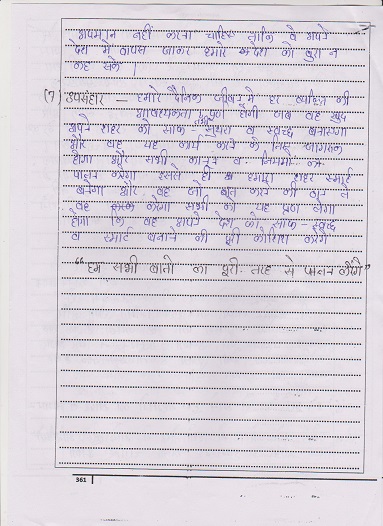 अपमान नहीं करना चाहिए ताकि वे अपने
देश में वापस जाकर हमारे देश को बुरा न
कह सके ।
(7) उपसंहार — हमारे दैनिक जीवन में हर व्यक्ति की
आवश्यकता पूर्ण होगी जब वह खुद
अपने शहर को साफ - सुथरा व स्वच्छ बनाएगा
और वह यह कार्य करने के लिए जागरूक
होगा और सभी कानून व नियमों का
पालन करेगा इससे ही हमारा शहर स्मार्ट
बनेगा और वह जो बात करने की
वह करेगा सभी को यह प्रण लेना
होगा कि वह अपने देश को साफ - स्वच्छ
व स्मार्ट बनाने की पूरी कोशिश करेंगे
“हम सभी बातो का पूरी तरह से पालन करेंगे”
361